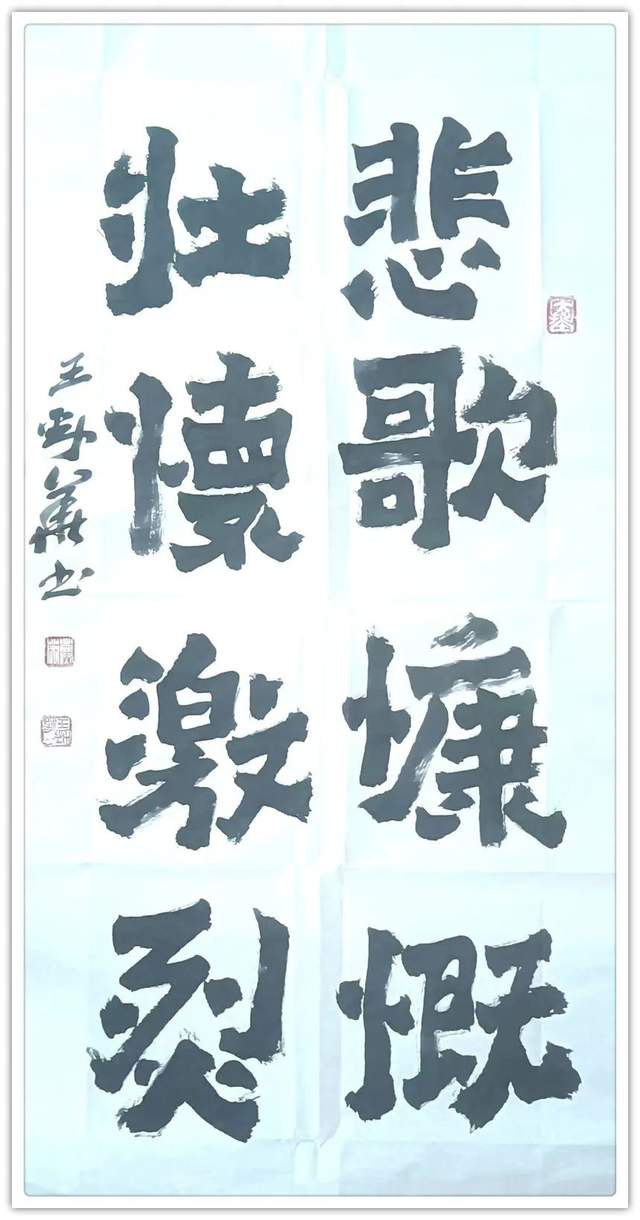 悲歌慷慨
壮懷激烈
王 華书